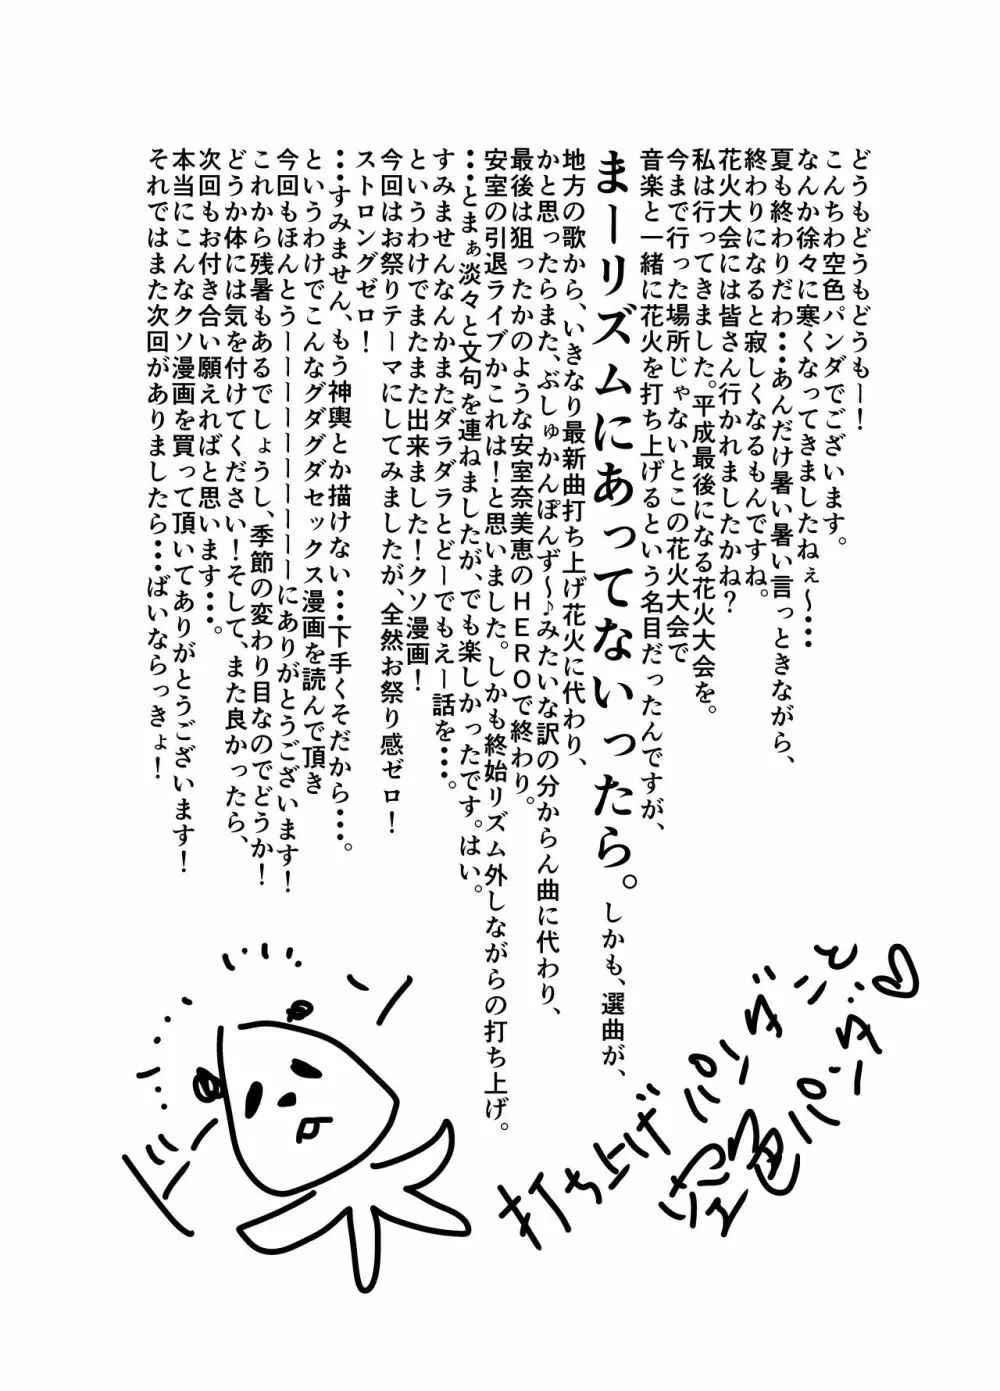 どうもどうもどうもー!
こんちわ空色パンダでございます。
なんか徐々に寒くなってきましたねぇ~・・・・
夏も終わりだわ・・・あんだけ暑い暑い言っときながら、
終わりになると寂しくなるもんですね。
花火大会には皆さん行かれましたかね?
私は行ってきました。平成最後になる花火大会を。
今まで行った場所じゃないとこの花火大会で
音楽と一緒に花火を打ち上げるという名目だったんですが、
まーリズムにあってないったら。しかも、選曲が、
地方の歌から、いきなり最新曲打ち上げ花火に代わり、
かと思ったらまた、ぶしゅかんぽんず~♪みたいな訳の分からん曲に代わり、
最後は狙ったかのような安室奈美恵のHEROで終わり。
安室の引退ライブかこれは!と思いました。しかも終始リズム外しながらの打ち上げ。
・・・とまぁ淡々と文句を連ねましたが、でも楽しかったです。はい。
すみませんなんかまたダラダラとどーでもえー話を・・・。
というわけでまたまた出来ました!クソ漫画!
今回はお祭りテーマにしてみましたが、全然お祭り感ゼロ!
ストロングゼロ!
・・・すみません、もう神輿とか描けない・・・下手くそだから・・・。
というわけでこんなグダグダセックス漫画を読んで頂き
今回もほんとうーーーーーーーーーにありがとうございます!
これから残暑もあるでしょうし、季節の変わり目なのでどうか!
どうか体には気を付けてください!そして、また良かったら、
次回もお付き合い願えればと思います・・・。
本当にこんなクソ漫画を買って頂いてありがとうございます!
それではまた次回がありましたら・・・ばいならっきょ!
ドーン
打ち上げパンダと
空色パンダ♡